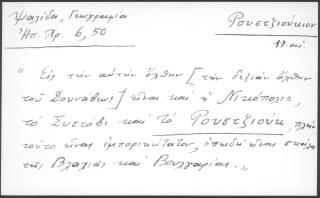 Ψαλίδα, Γεωγραφία
Ἠπ. Χρ. 6, 50
Ρουστζιούκιον
19 αἰ.
"Εἰς τὴν αὐτὴν ὄχθην [τὴν δεξιὰν ὄχθην
τοῦ Δουνάβεως] εἶναι καὶ ἡ Νικόπολις,
τὸ Συστόβι καὶ τὸ Ρουστζιούκ, πλὴν
τοῦτο εἶναι ἐμπορικώτατον, ἐπειδὴ εἶναι σκάλα
τῆς Βλαχιᾶς καὶ Βουλγαρίας."